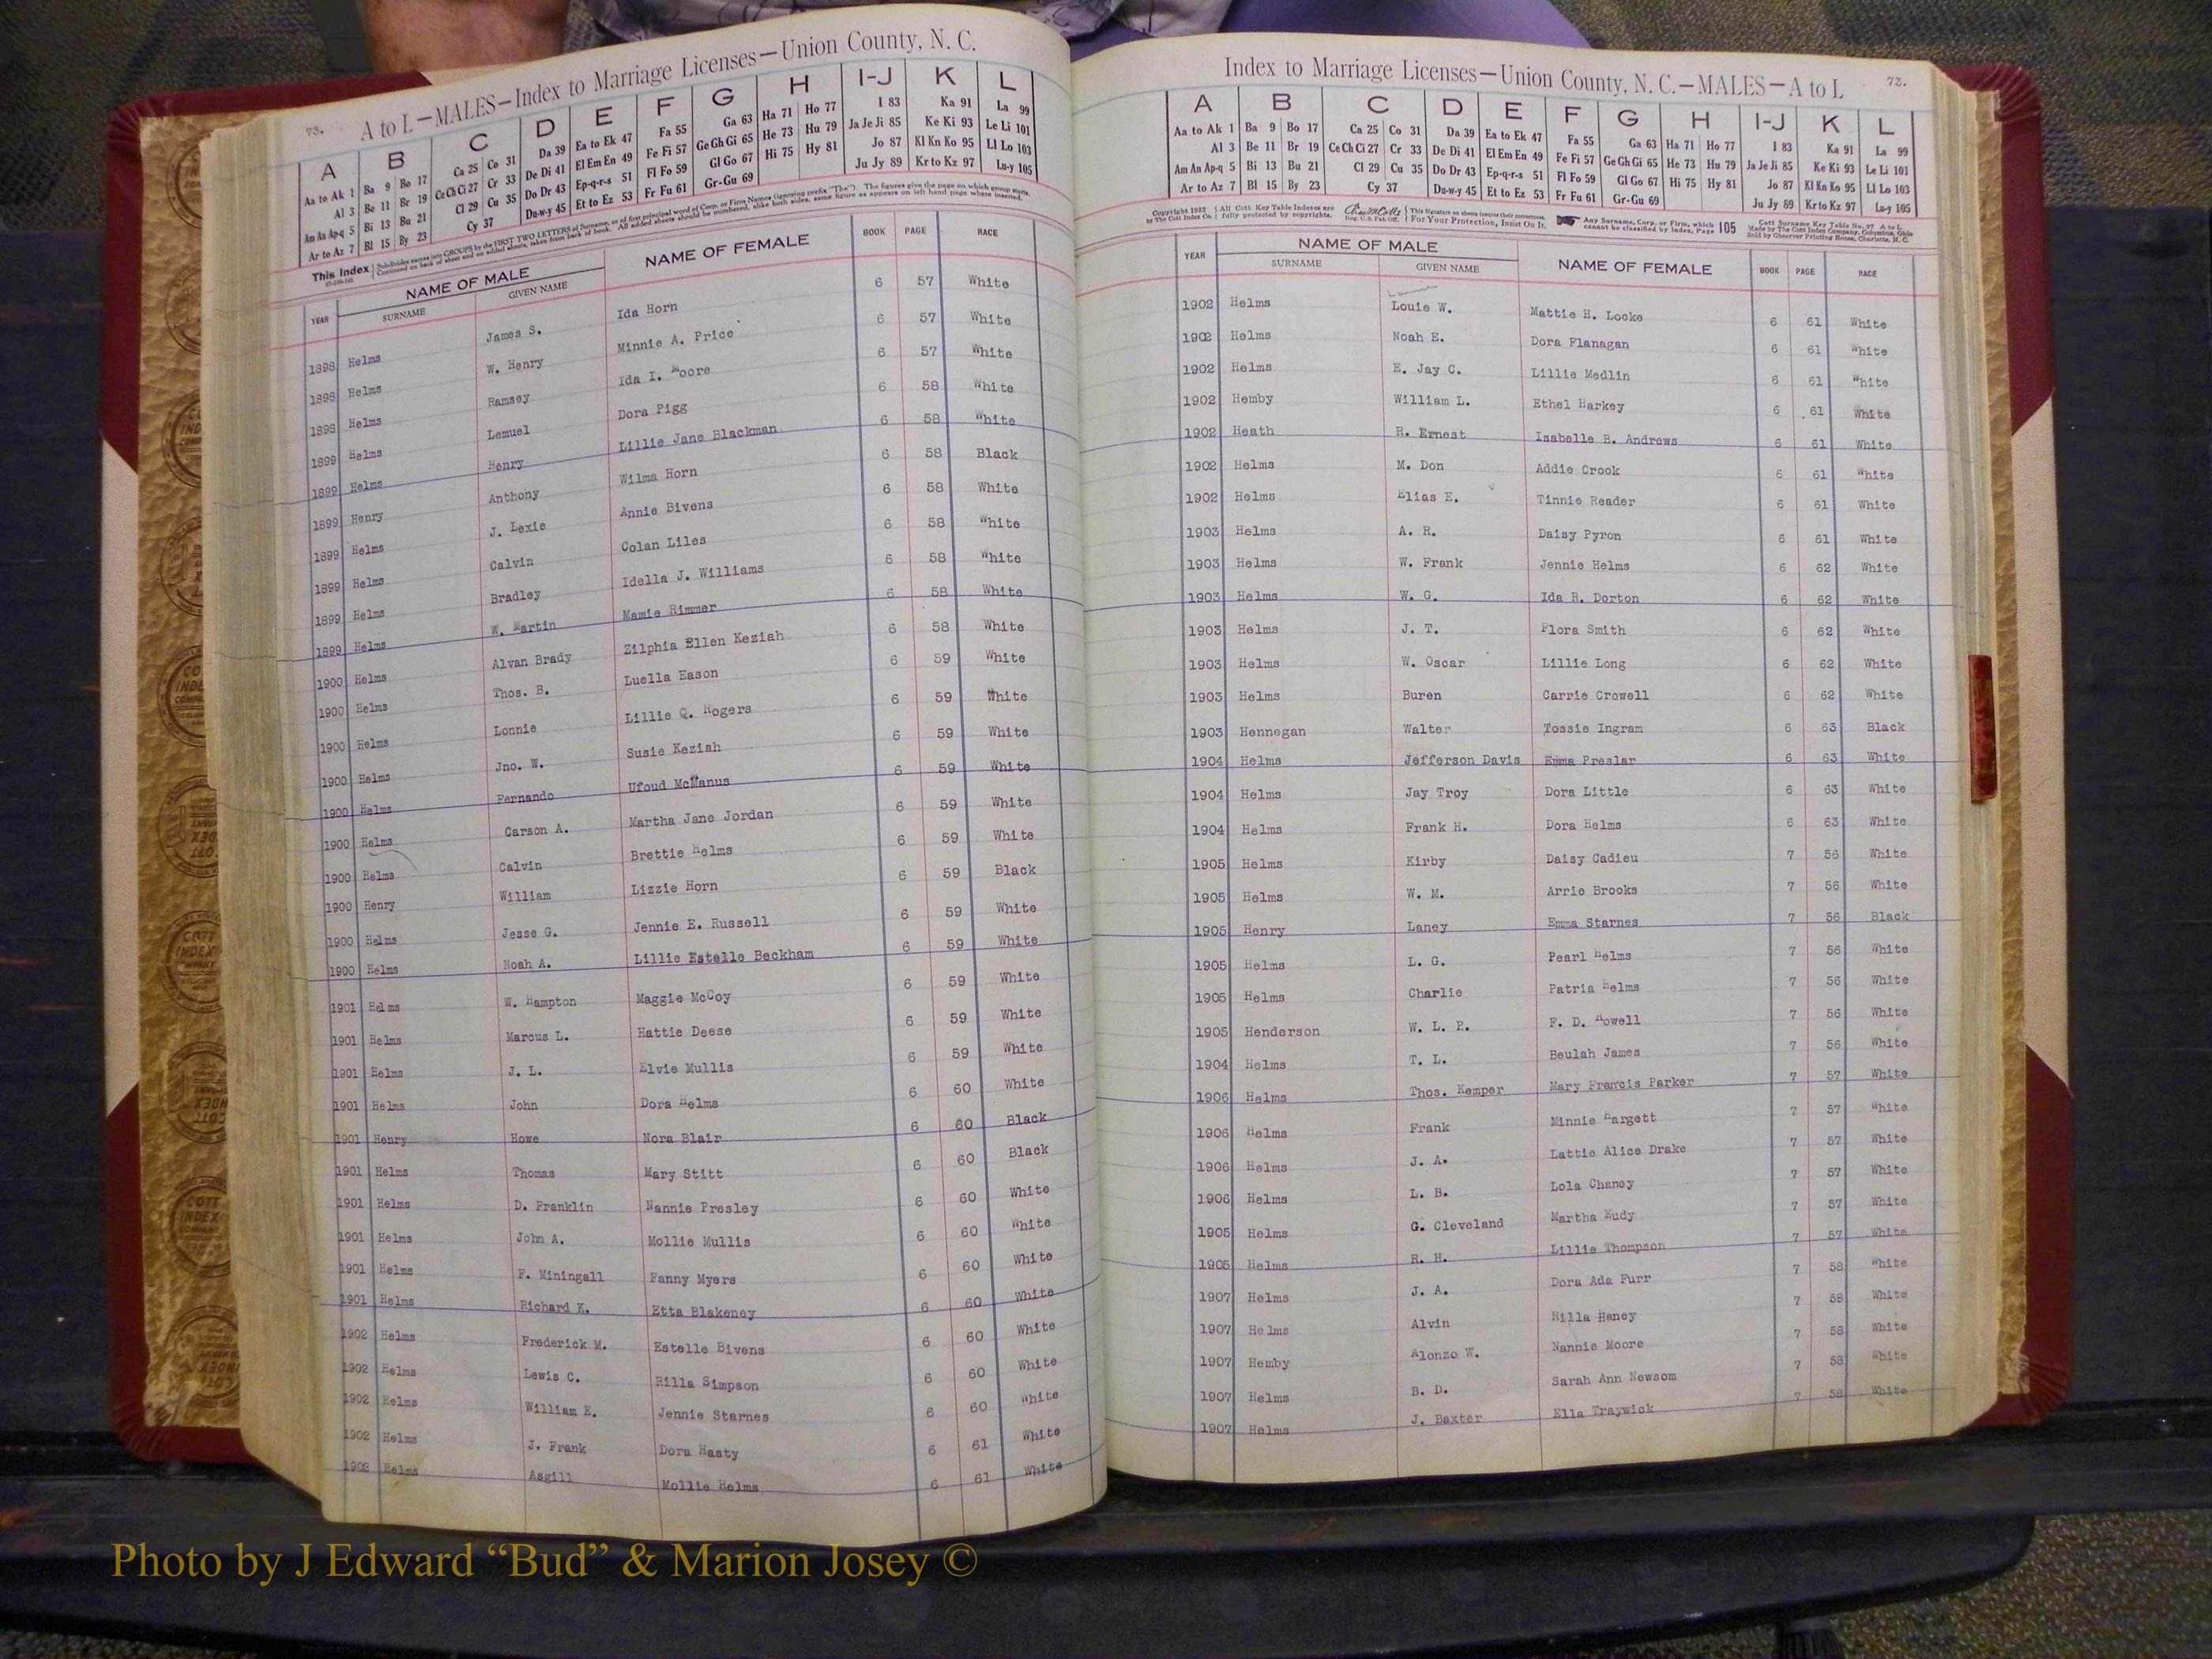 73.
A to L—MALES—Index to Marriage Licenses—Union County, N. C.
A B C D E F G H I-J K L
Aa to Ak 1 Ba 9 Bo 17 Ca 25 Co 31 Da 39 Ea to Ek 47 Fa 55 Ga 63 Ha 71 Ho 77 I 83 Ka 91 La 99
Al 3 Be 11 Br 19 Ce Ch Ci 27 Cr 33 De Di 41 El Em En 49 Fe Fi 57 Ge Gh Gi 65 He 73 Hu 79 Ja Je Ji 85 Ke Ki 93 Le Li 101
Am An Ap-q 5 Bi 13 Bu 21 Cl 29 Cu 35 Do Dr 43 Ep-q-r-s 51 Fl Fo 59 Gl Go 67 Hi 75 Hy 81 Jo 87 Kl Kn Ko 95 Ll Lo 103
Ar to Az 7 Bl 15 By 23 Cy 37 Du-w-y 45 Et to Ez 53 Fr Fu 61 Gr-Gu 69 Ju Jy 89 Kr to Kz 97 Lu-y 105
This Index Subdivides names into GROUPS by the FIRST TWO LETTERS of Surname, or of first principal word of Corp. or Firm Names (ignoring prefix "The"). The figures give the page on which group starts.
Continued on back of sheet and on added sheets, taken from back of book. All added sheets should be numbered, alike both sides, same figure as appears on left hand page where inserted.
YEAR NAME OF MALE SURNAME GIVEN NAME NAME OF FEMALE BOOK PAGE RACE
1898 Helms James S. Ida Horn 6 57 White
1898 Helms W. Henry Minnie A. Price 6 57 White
1898 Helms Ramsey Ida I. Moore 6 57 White
1899 Helms Lemuel Dora Pigg 6 58 White
1899 Helms Henry Lillie Jane Blackman 6 58 White
1899 Henry Anthony Wilma Horn 6 58 Black
1899 Helms J. Lexie Annie Bivens 6 58 White
1899 Helms Calvin Colan Liles 6 58 White
1899 Helms Bradley Idella J. Williams 6 58 White
1899 Helms W. Martin Mamie Rimmer 6 58 White
1900 Helms Alvan Brady Zilphia Ellen Keziah 6 58 White
1900 Helms Thos. B. Luella Eason 6 59 White
1900 Helms Lonnie Lillie Q. Rogers 6 59 White
1900 Helms Jno. W. Susie Keziah 6 59 White
1900 Helms Fernando Ufoud McManus 6 59 White
1900 Helms Carson A. Martha Jane Jordan 6 59 White
1900 Helms Calvin Brettie Helms 6 59 White
1900 Henry William Lizzie Horn 6 59 Black
1900 Helms Jesse G. Jennie E. Russell 6 59 White
1900 Helms Noah A. Lillie Estelle Beckham 6 59 White
1901 Helms W. Hampton Maggie McCoy 6 59 White
1901 Helms Marcus L. Hattie Deese 6 59 White
1901 Helms J. L. Elvie Mullis 6 59 White
1901 Helms John Dora Helms 6 60 White
1901 Henry Howe Nora Blair 6 60 Black
1901 Helms Thomas Mary Stitt 6 60 Black
1901 Helms D. Franklin Nannie Presley 6 60 White
1901 Helms John A. Mollie Mullis 6 60 White
1901 Helms F. Miningall Fanny Myers 6 60 White
1901 Helms Richard K. Etta Blakeney 6 60 White
1902 Helms Frederick M. Estelle Bivens 6 60 White
1902 Helms Lewis C. Rilla Simpson 6 60 White
1902 Helms William E. Jennie Starnes 6 60 White
1902 Helms J. Frank Dora Hasty 6 61 White
1902 Helms Asgill Mollie Helms 6 61 White
Index to Marriage Licenses—Union County, N. C.—MALES—A to L 73.
A B C D E F G H I-J K L
Aa to Ak 1 Ba 9 Bo 17 Ca 25 Co 31 Da 39 Ea to Ek 47 Fa 55 Ga 63 Ha 71 Ho 77 I 83 Ka 91 La 99
Al 3 Be 11 Br 19 Ce Ch Ci 27 Cr 33 De Di 41 El Em En 49 Fe Fi 57 Ge Gh Gi 65 He 73 Hu 79 Ja Je Ji 85 Ke Ki 93 Le Li 101
Am An Ap-q 5 Bi 13 Bu 21 Cl 29 Cu 35 Do Dr 43 Ep-q-r-s 51 Fl Fo 59 Gl Go 67 Hi 75 Hy 81 Jo 87 Kl Kn Ko 95 Ll Lo 103
Ar to Az 7 Bl 15 By 23 Cy 37 Du-w-y 45 Et to Ez 53 Fr Fu 61 Gr-Gu 69 Ju Jy 89 Kr to Kz 97 Lu-y 105
Copyright 1932 by The Cott Index Co. All Cott Key Table Indexes are fully protected by copyrights. Reg. U.S. Pat. Off. This Signature on sheets insures their correctness. For Your Protection, Insist On It. Any Surname, Corp. or Firm, which cannot be classified by Index, Page 105 Cott Surname Key Table No. 97 A to L Made by The Cott Index Company, Columbus, Ohio Sold by Observer Printing House, Charlotte, N. C.
YEAR NAME OF MALE SURNAME GIVEN NAME NAME OF FEMALE BOOK PAGE RACE
1902 Helms Louie W. Mattie H. Locke 6 61 White
1902 Helms Noah E. Dora Flanagan 6 61 White
1902 Helms E. Jay C. Lillie Medlin 6 61 White
1902 Hemby William L. Ethel Harkey 6 61 White
1902 Heath R. Ernest Isabelle B. Andrews 6 61 White
1902 Helms M. Don Addie Crook 6 61 White
1902 Helms Elias E. Tinnie Reader 6 61 White
1903 Helms A. R. Daisy Pyron 6 61 White
1903 Helms W. Frank Jennie Helms 6 62 White
1903 Helms W. G. Ida R. Dorton 6 62 White
1903 Helms J. T. Flora Smith 6 62 White
1903 Helms W. Oscar Lillie Long 6 62 White
1903 Helms Buren Carrie Crowell 6 62 White
1903 Hennegan Walter Tossie Ingram 6 63 Black
1904 Helms Jefferson Davis Emma Preslar 6 63 White
1904 Helms Jay Troy Dora Little 6 63 White
1904 Helms Frank H. Dora Helms 6 63 White
1905 Helms Kirby Daisy Cadieu 7 56 White
1905 Helms W. M. Arrie Brooks 7 56 White
1905 Henry Laney Emma Starnes 7 56 Black
1905 Helms L. G. Pearl Helms 7 56 White
1905 Helms Charlie Patria Helms 7 56 White
1905 Henderson W. L. P. F. D. Howell 7 56 White
1904 Helms T. L. Beulah James 7 56 White
1906 Helms Thos. Kemper Mary Francis Parker 7 57 White
1906 Helms Frank Minnie Hargett 7 57 White
1906 Helms J. A. Lattie Alice Drake 7 57 White
1906 Helms L. B. Lola Chaney 7 57 White
1905 Helms G. Cleveland Martha Eudy 7 57 White
1905 Helms R. H. Lillie Thompson 7 57 White
1907 Helms J. A. Dora Ada Furr 7 58 White
1907 Helms Alvin Rilla Haney 7 58 White
1907 Hemby Alonzo W. Nannie Moore 7 58 White
1907 Helms B. D. Sarah Ann Newsom 7 58 White
1907 Helms J. Baxter Ella Traywick 7 58 White
Photo by J Edward “Bud” & Marion Josey ©